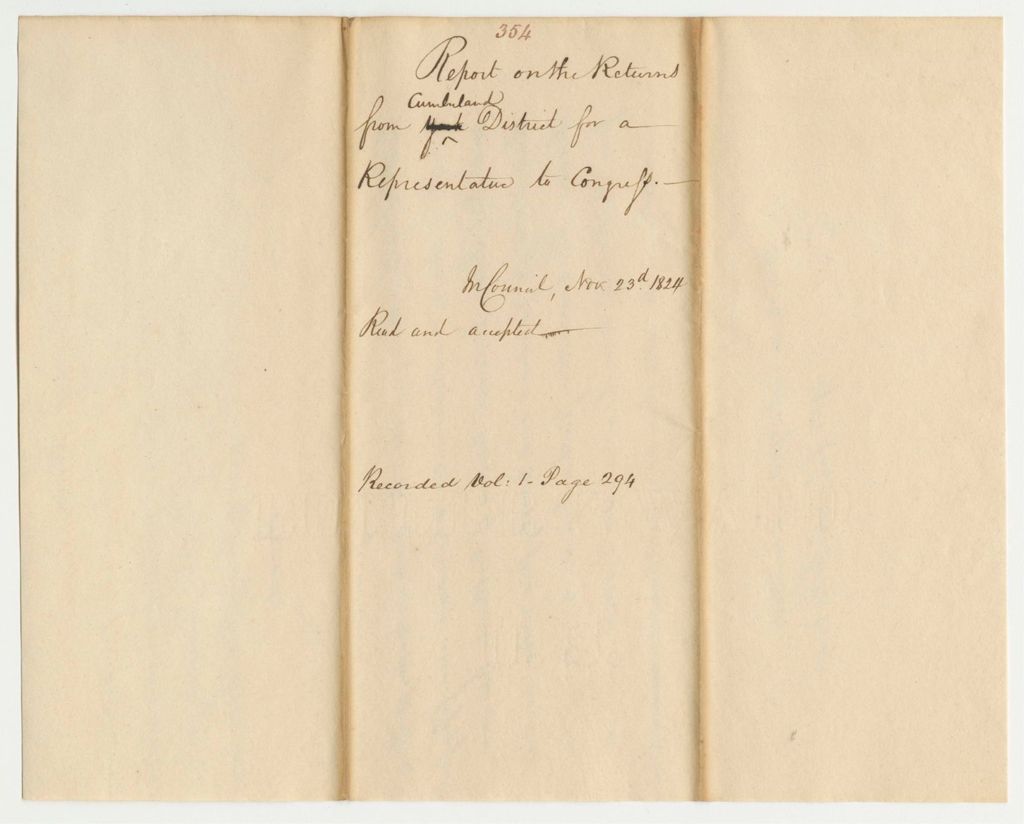 354
Report on the Returns
Cumberland
from York District for a
Representative to Congress.
In Council, Nov. 23d. 1824
Read and accepted
Recorded Vol: 1 - Page 294